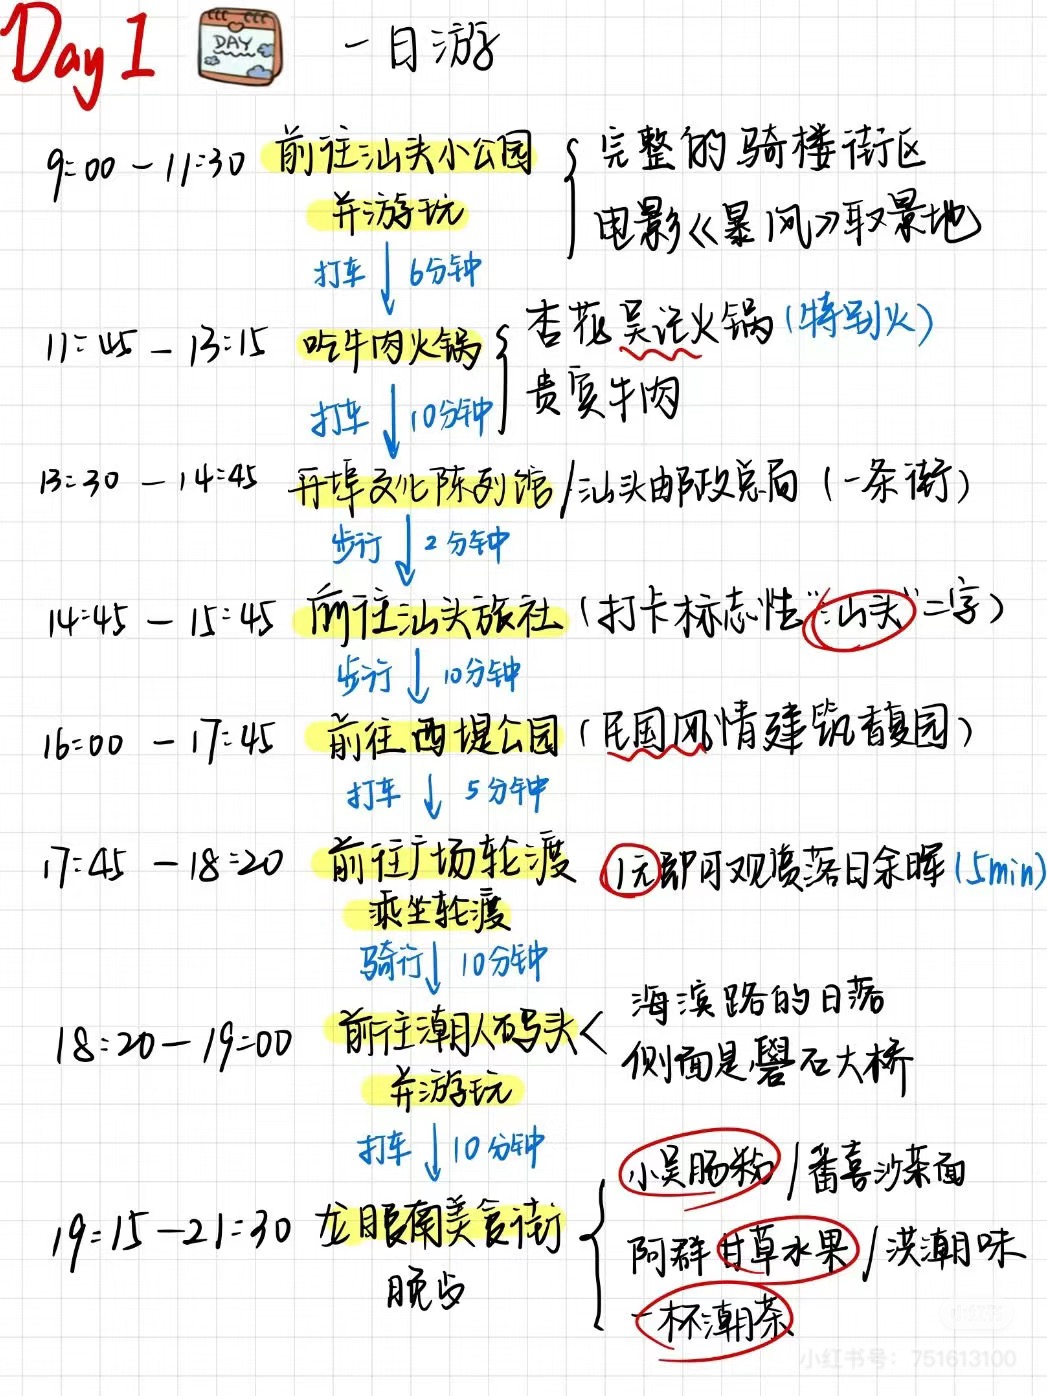 Day 1
DAY
一日游
9:00 - 11:30 前往汕头小公园
并游玩
完整的骑楼街区
电影《暴风》取景地
打车 6分钟
11:45 - 13:15 吃牛肉火锅
杏花吴记火锅(特别火)
贵宾牛肉
打车 10分钟
13:30 - 14:45 开埠文化陈列馆/汕头邮政总局(一条街)
步行 2分钟
14:45 - 15:45 前往汕头旅社(打卡标志性“汕头”二字)
步行 10分钟
16:00 - 17:45 前往西堤公园(民国风情建筑群公园)
打车 5分钟
17:45 - 18:20 前往广场轮渡 1元即可观赏落日余晖(5min)
乘坐轮渡
骑行 10分钟
18:20 - 19:00 前往潮人码头
并游玩
海滨路的日落
侧面是礐石大桥
打车 10分钟
19:15 - 21:30 龙眼南美食街
晚上
小吴肠粉/番喜沙茶面
阿群甘草水果/洪潮味
一杯潮茶
小红书
小红书号:751613100